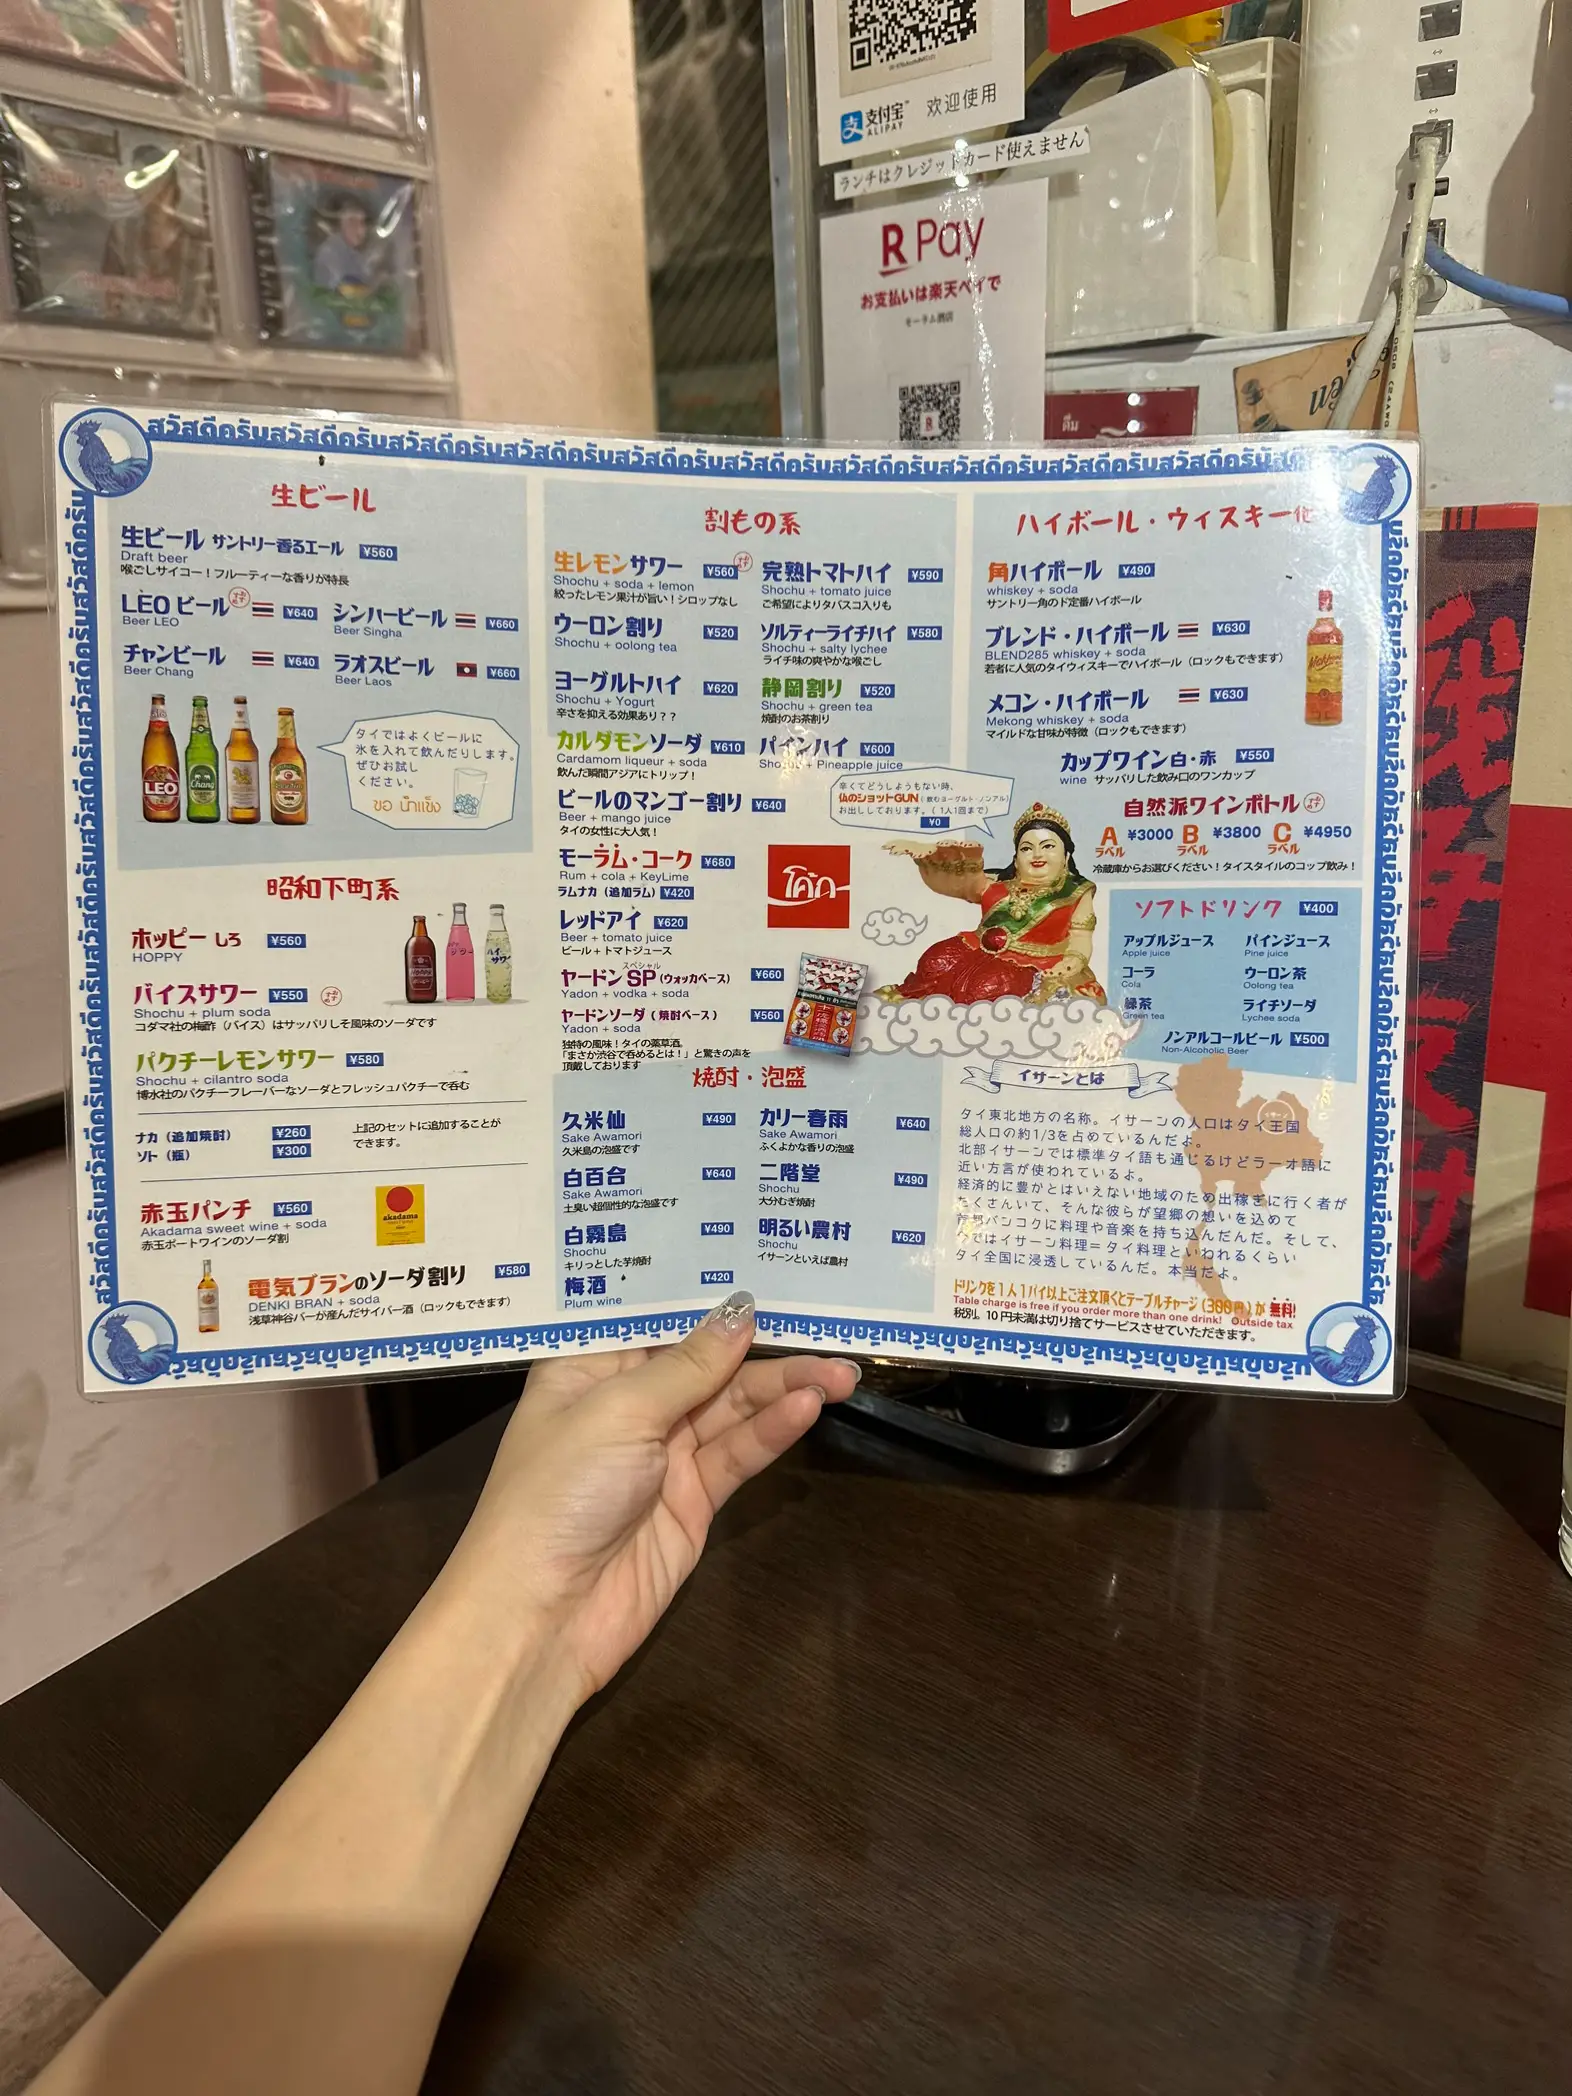 支付宝
ALIPAY
欢迎使用
ランチはクレジットカード使えません
R Pay
お支払いは楽天ペイで
モーラム酒店
สวัสดีครับสวัสดีครับสวัสดีครับสวัสดีครับสวัสดีครับสวัสดีครับสวัสดีครับสวัสดีครับสวัสดีครับ
生ビール
生ビール サントリー香るエール ¥560
Draft beer
喉ごしサイコー!フルーティーな香りが特長
LEO ビール おすすめ ¥640
Beer LEO
シンハービール ¥660
Beer Singha
チャンビール ¥640
Beer Chang
ラオスビール ¥660
Beer Laos
LEO
Chang
タイではよくビールに
氷を入れて飲んだりします。
ぜひお試し
ください。
ขอ น้ำแข็ง
昭和下町系
ホッピー しろ ¥560
HOPPY
バイスサワー ¥550 おすすめ
Shochu + plum soda
コダマ社の梅酢(バイス)はサッパリしそ風味のソーダです
パクチーレモンサワー ¥580
Shochu + cilantro soda
博水社のパクチーフレーバーなソーダとフレッシュパクチーで呑む
ナカ(追加焼酎) ¥260
ソト(瓶) ¥300
上記のセットに追加することが
できます。
赤玉パンチ ¥560
Akadama sweet wine + soda
赤玉ポートワインのソーダ割
akadama
電気ブランのソーダ割り ¥580
DENKI BRAN + soda
浅草神谷バーが産んだサイバー酒(ロックもできます)
割もの系
生レモンサワー ¥560 おすすめ
Shochu + soda + lemon
絞ったレモン果汁が旨い!シロップなし
完熟トマトハイ ¥590
Shochu + tomato juice
ご希望によりタバスコ入りも
ウーロン割り ¥520
Shochu + oolong tea
ソルティーライチハイ ¥580
Shochu + salty lychee
ライチ味の爽やかな喉ごし
ヨーグルトハイ ¥620
Shochu + Yogurt
辛さを抑える効果あり??
静岡割り ¥520
Shochu + green tea
焼酎のお茶割り
カルダモンソーダ ¥610
Cardamom liqueur + soda
飲んだ瞬間アジアにトリップ!
パインハイ ¥600
Shochu + Pineapple juice
ビールのマンゴー割り ¥640
Beer + mango juice
タイの女性に大人気!
辛くてどうしようもない時、
仏のショットGUN(飲むヨーグルト・ノンアル)
お出ししております。(1人1回まで)
¥0
モーラム・コーク ¥680
Rum + cola + KeyLime
ラムナカ(追加ラム) ¥420
โค้ก
レッドアイ ¥620
Beer + tomato juice
ビール+トマトジュース
スペシャル
ヤードンSP(ウォッカベース) ¥660
Yadon + vodka + soda
ヤードンソーダ(焼酎ベース) ¥560
Yadon + soda
独特の風味!タイの薬草酒。
「まさか渋谷で呑めるとは!」と驚きの声を
頂戴しております
焼酎・泡盛
久米仙 ¥490
Sake Awamori
久米島の泡盛です
カリー春雨 ¥640
Sake Awamori
ふくよかな香りの泡盛
白百合 ¥640
Sake Awamori
土臭い超個性的な泡盛です
二階堂 ¥490
Shochu
大分むぎ焼酎
白霧島 ¥490
Shochu
キリっとした芋焼酎
明るい農村 ¥620
Shochu
イサーンといえば農村
梅酒 ¥420
Plum wine
ハイボール・ウィスキー他
角ハイボール ¥490
whiskey + soda
サントリー角のド定番ハイボール
ブレンド・ハイボール ¥630
BLEND285 whiskey + soda
若者に人気のタイウィスキーでハイボール(ロックもできます)
メコン・ハイボール ¥630
Mekong whiskey + soda
マイルドな甘味が特徴(ロックもできます)
カップワイン白・赤 ¥550
wine サッパリした飲み口のワンカップ
自然派ワインボトル おすすめ
A ラベル ¥3000 B ラベル ¥3800 C ラベル ¥4950
冷蔵庫からお選びください!タイスタイルのコップ飲み!
ソフトドリンク ¥400
アップルジュース
Apple juice
パインジュース
Pine juice
コーラ
Cola
ウーロン茶
Oolong tea
緑茶
Green tea
ライチソーダ
Lychee soda
ノンアルコールビール ¥500
Non-Alcoholic Beer
イサーンとは
タイ東北地方の名称。イサーンの人口はタイ王国
総人口の約1/3を占めているんだよ。
北部イサーンでは標準タイ語も通じるけどラーオ語に
近い方言が使われているよ。
経済的に豊かとはいえない地域のため出稼ぎに行く者が
たくさんいて、そんな彼らが望郷の想いを込めて
首都バンコクに料理や音楽を持ち込んだんだ。そして、
今ではイサーン料理=タイ料理といわれるくらい
タイ全国に浸透しているんだ。本当だよ。
ドリンクを1人1パイ以上ご注文頂くとテーブルチャージ(300円)が 無料!
Table charge is free if you order more than one drink! Outside tax
税別。10円未満は切り捨てサービスさせていただきます。